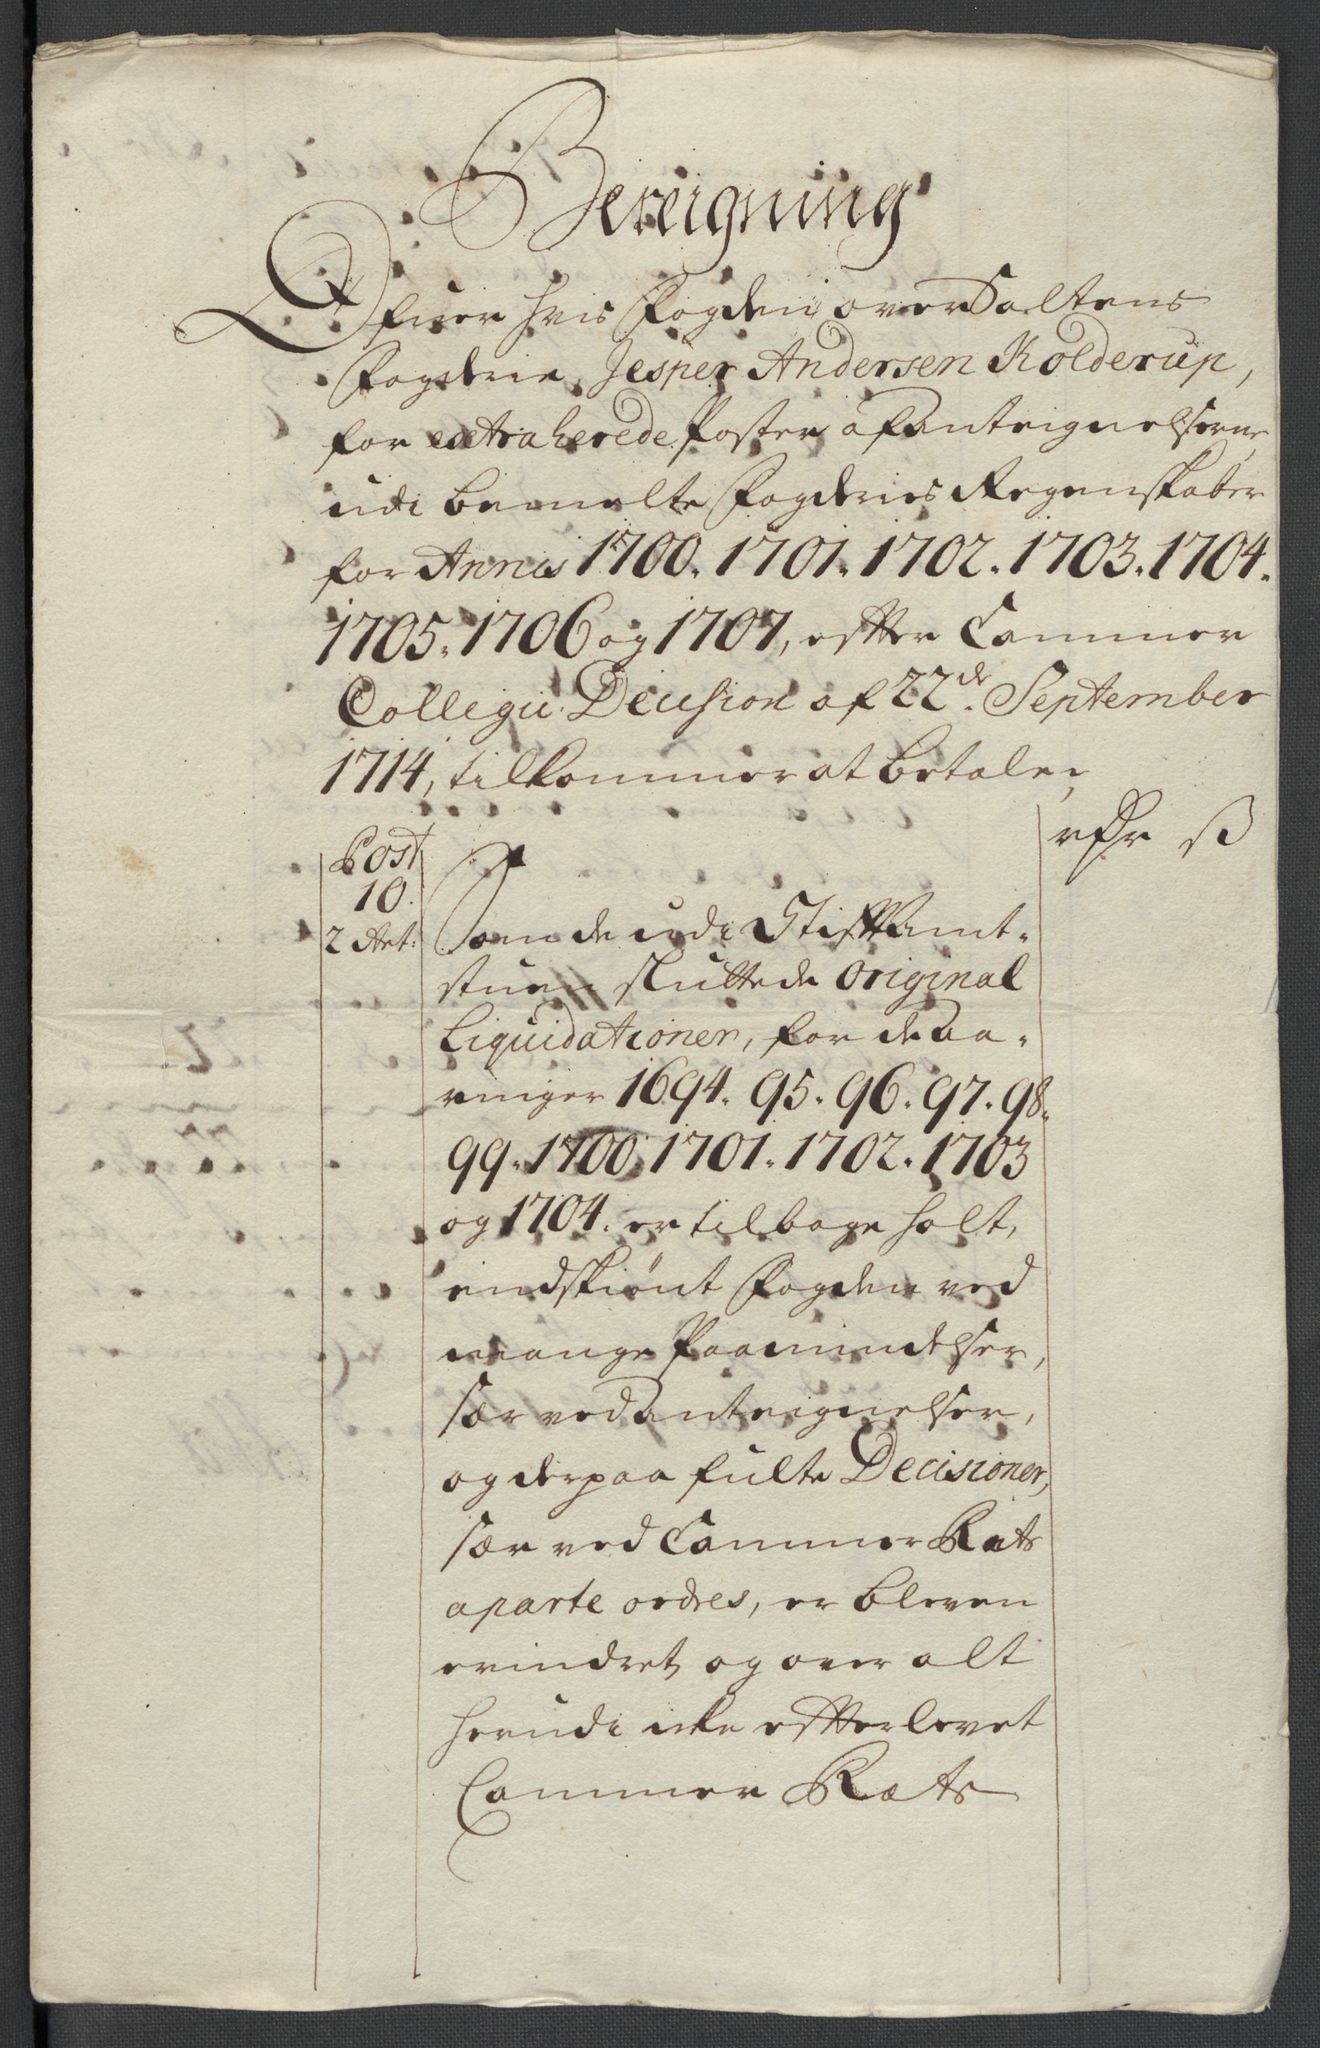 Bereigning
Ofuer hvis Fogden over Saltens
Fogderie, Jesper Andersen Kolderup,
for extraherede Poster af Anteignelserne
udi bemelte Fogderies Regenskaber
for Annis 1700. 1701. 1702. 1703. 1704.
1705. 1706 og 1707, efter Cammer
Collegii Decision af 22de September
1714, tilkommer at betale,
rdr ß
Post
10.
2 Art:
Som de udi StifftAmt-
stuen sluttede Original
Liquidationer, for de Aa-
ringer 1694. 95. 96. 97. 98.
99. 1700. 1701. 1702. 1703
og 1704. er tilbage holt,
endskiønt Fogden ved
mange Paamindelser,
sær ved Anteignelser,
og derpaa fulte Decisioner,
sær ved Cammer Rets
aparte ordres, er bleven
erindret, og over alt
herudi icke efterlevet
Cammer Rets